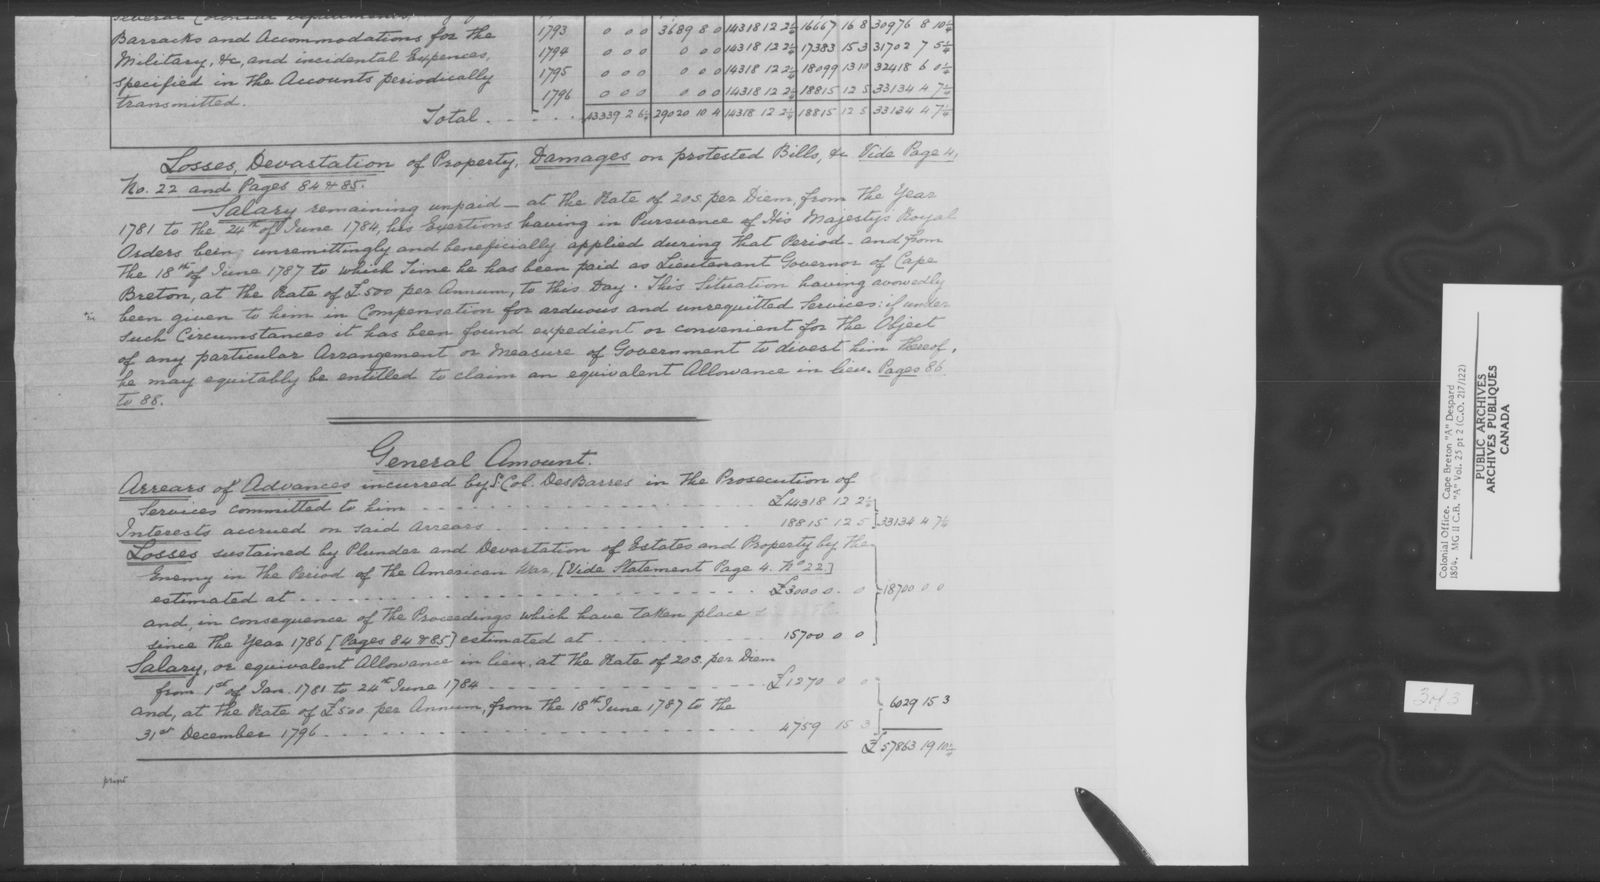 several Colonial Departments,
Barracks and Accommodations for the 1793 0 0 0 3689 8 0 14318 12 2¼ 16667 16 8 30976 8 10¼
Military, &c, and incidental Expences, 1794 0 0 0 0 0 0 14318 12 2¼ 17383 15 3 31702 7 5¼
specified in the Accounts periodically 1795 0 0 0 0 0 0 14318 12 2¼ 18099 13 10 32418 6 0¼
transmitted. 1796 0 0 0 0 0 0 14318 12 2¼ 18815 12 5 33134 4 7¼
Total 43339 2 6¼ 29020 10 4 14318 12 2¼ 18815 12 5 33134 4 7¼
Losses, Devastation of Property, Damages on protested Bills, &c Vide Page 4,
No. 22 and Pages 84 & 85.
Salary remaining unpaid — at the Rate of 20s. per Diem, from the Year
1781 to the 24th of June 1784, his Exertions having in Pursuance of His Majesty's Royal
Orders being unremittingly and beneficially applied during that Period - and from
the 18th of June 1787 to which Time he has been paid as Lieutenant Governor of Cape
Breton, at the Rate of £500 per Annum, to this Day. This Situation having avowedly
been given to him in Compensation for arduous and unrequitted Services: if under
such Circumstances it has been found expedient or convenient for the Object
of any particular Arrangement or Measure of Government to divest him thereof,
he may equitably be entitled to claim an equivalent Allowance in lieu. Pages 86
to 88.
General Amount.
Arrears of Advances incurred by L. Col. DesBarres in the Prosecution of
Services committed to him £14318 12 2¼
Interests accrued on said Arrears 18815 12 5 33134 4 7¼
Losses sustained by Plunder and Devastation of Estates and Property by the
Enemy in the Period of the American War, [Vide Statement Page 4. No 22]
estimated at £3000 0 0 18700 0 0
and, in consequence of the Proceedings which have taken place
since the Year 1786 [Pages 84 & 85] estimated at 15700 0 0
Salary, or equivalent Allowance in lieu, at the Rate of 20s. per Diem
from 1st of Jan. 1781 to 24th June 1784 £1270 0 0
and, at the Rate of £500 per Annum, from the 18th June 1787 to the 6029 15 3
31st December 1796 4759 15 3
£57863 19 10¼
print
Colonial Office. Cape Breton "A" Despard
1804. MG 11 C.B. "A" Vol. 25 pt 2 (C.O. 217/122)
PUBLIC ARCHIVES
ARCHIVES PUBLIQUES
CANADA
3 of 3